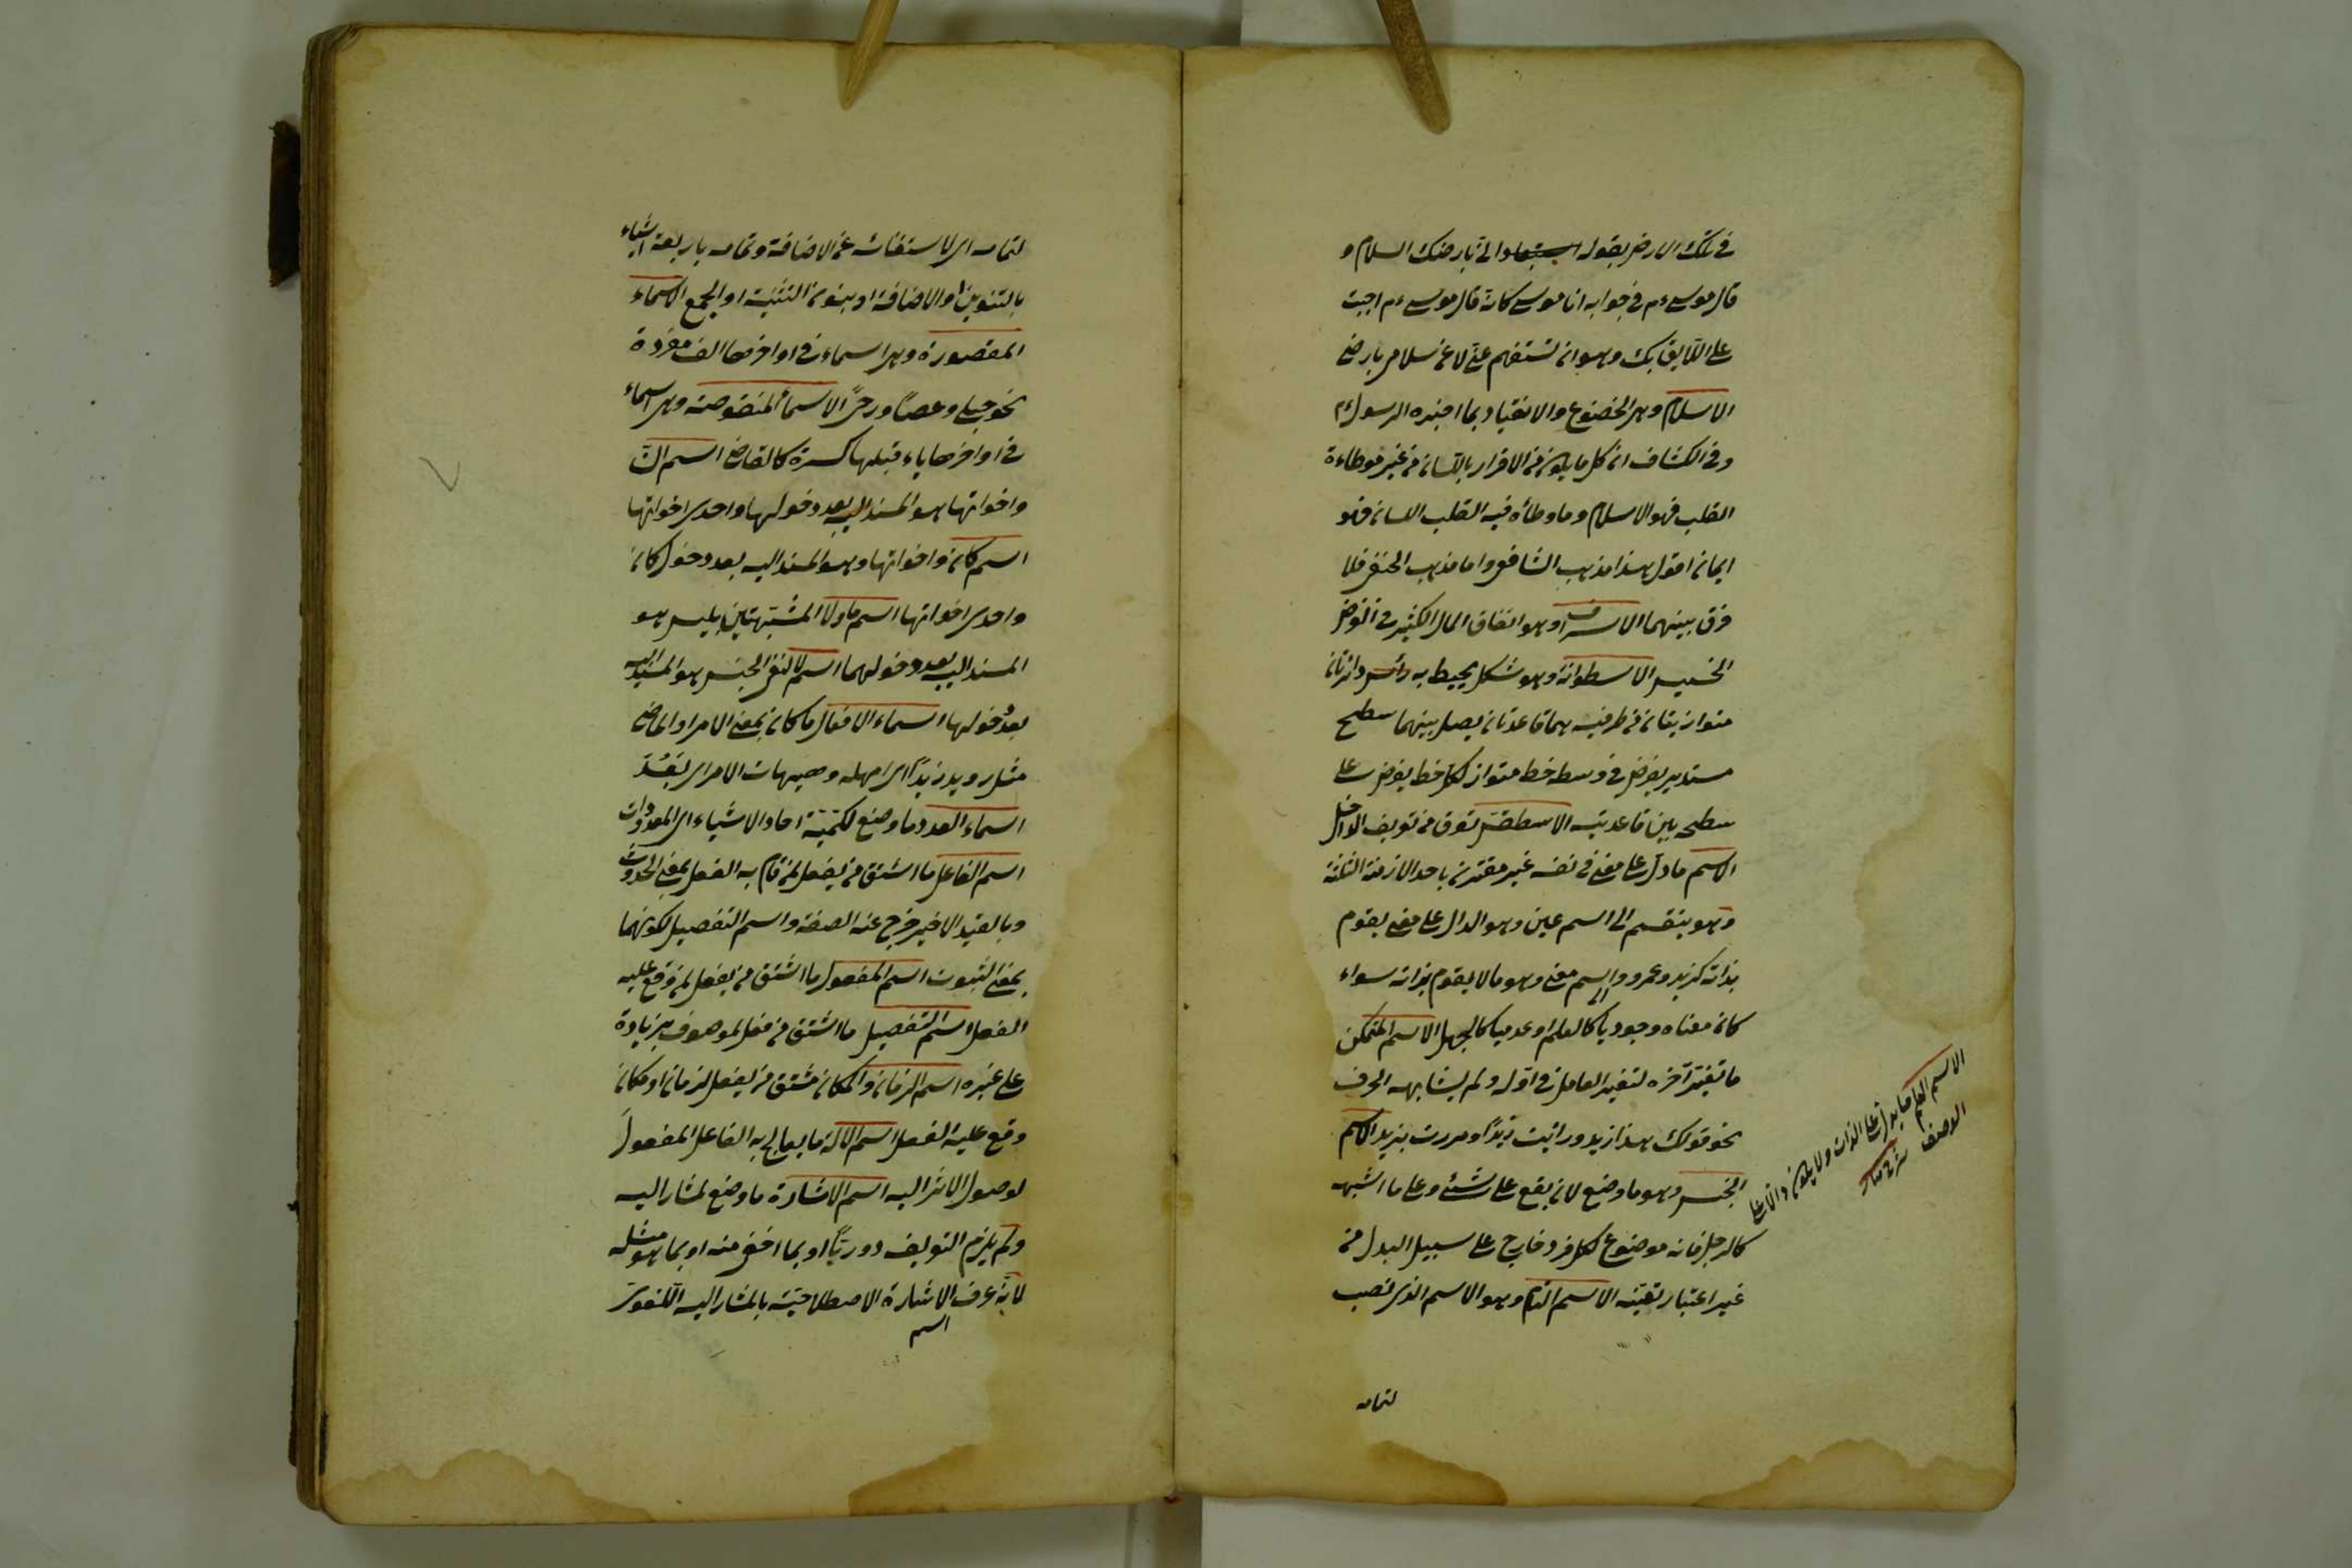 في تلك الارض بقوله استبعادا اني بارضك السلام و
قال موسى ءم في جوابه انا موسى كانه قال موسى ءم اجبت
على اللايق بك وهو ان تستفهم عني لا عن سلامي بارضي
الاسلام وهو الخضوع والانقياد بما اخبره الرسول ءم
وفي الكشاف ان كل ما يكون من الاقرار باللسان من غير مواطاءة
القلب فهو الاسلام وما وطأه فيه القلب اللسان فهو
ايمان اقول هذا مذهب الشافعي واما مذهب الحنفي فلا
فرق بينهما الاسراف وهو انفاق المال الكثير في الغرض
الخسيس الاسطوانة وهو شكل يحيط به دائرتان
متوازيتان من طرفيه هما قاعدتان يصل بينهما سطح
مستدير يفرض في وسطه خط متواز لكل خط يفرض على
سطحه بين قاعدتيه الاسطقس تعرف من تعريف الداخل
الاسم ما دل على معنى في نفسه غير مقترن باحد الازمنة الثلثة
وهو ينقسم الى اسم عين وهو الدال على معنى يقوم
بذاته كزيد وعمرو والى اسم معنى وهو ما لا يقوم بذاته سواء
كان معناه وجوديا كالعلم او عدميا كالجهل الاسم المتمكن
ما تغير آخره لتغير العامل في اوله ولم يشابهه الحرف
نحو قولك هذا زيد ورأيت زيدًا ومررت بزيد الاسم
الجنس وهو ما وضع لان يقع على شئ وعلى ما اشبهه
كالرجل فانه موضوع لكل فرد خارج على سبيل البدل من
غير اعتبار تعينه الاسم التام وهو الاسم الذي نصب
لتمامه
الاسم العلم ما يدل على الذات ولا يكون دالا على
الوصف شرح منار
لتمامه اى لاستغنائه عن الاضافة وتمامه باربعة اشياء
بالتنوين او الاضافة او بنون التثنية او الجمع الاسماء
المقصورة وهى اسماء في اواخرها الف مفردة
نحو حبلى وعصًا ورحًى الاسماء المنقوصة وهى اسماء
في اواخرها ياء قبلها كسرة كالقاضي اسم انّ
واخواتها هو المسند اليه بعد دخولها واحدى اخواتها
اسم كان واخواتها وهو المسند اليه بعد دخول كان
واحدى اخواتها اسم ما ولا المشبهتين بليس هو
المسند اليه بعد دخولهما اسم لا لنفى الجنس هو المسند اليه
بعد دخولها اسماء الافعال ما كان بمعنى الامر او الماضي
مثل رويد زيدًا اى امهله وهيهات الامر اى بَعُدَ
اسماء العدد ما وضع لكمية احاد الاشياء اى المعدودات
اسم الفاعل ما اشتق من يفعل لمن قام به الفعل بمعنى الحدوث
وبالقيد الاخير خرج عنه الصفة واسم التفضيل لكونهما
بمعنى الثبوت اسم المفعول ما اشتق من يفعل لمن وقع عليه
الفعل اسم التفضيل ما اشتق من فعل لموصوف بزيادة
على غيره اسم الزمان والمكان مشتق من يفعل لزمان او مكان
وقع عليه الفعل اسم الالة ما يعالج به الفاعل المفعول
لوصول الاثر اليه اسم الاشارة ما وضع لمشار اليه
ولم يلزم التعريف دوريًا او بما اخفى منه او بما هو مثله
لانه عرف الاشارة الاصطلاحية بالمشار اليه اللغوى
اسم